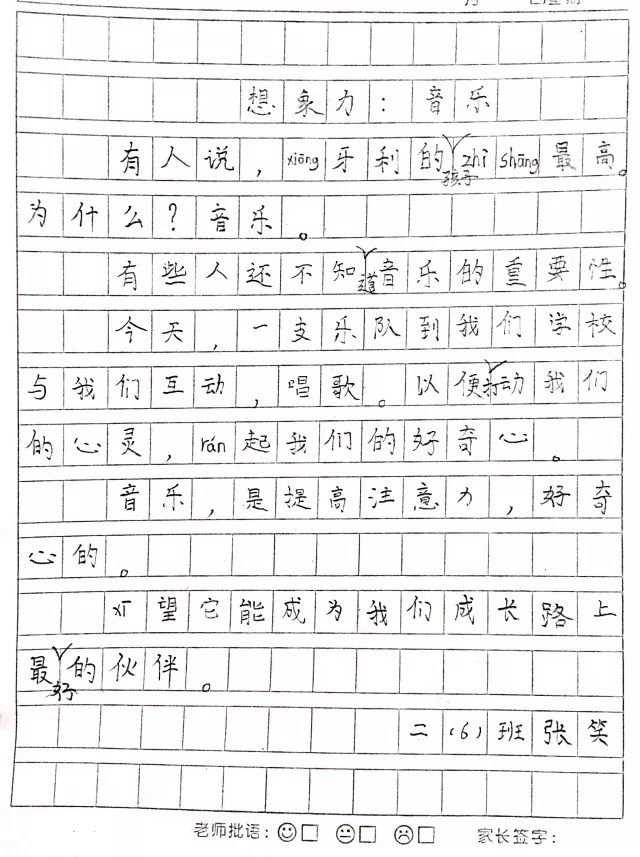 想象力：音乐
有人说，xiōng牙利的孩子zhīshāng最高。
为什么？音乐。
有些人还不知道音乐的重要性。
今天，一支乐队到我们学校
与我们互动，唱歌。以便打动我们
的心灵，rán起我们的好奇心。
音乐，是提高注意力，好奇
心的。
xī望它能成为我们成长路上
最好的伙伴。
二（6）班张笑
老师批语：☺□ 😐□ ☹□ 家长签字：